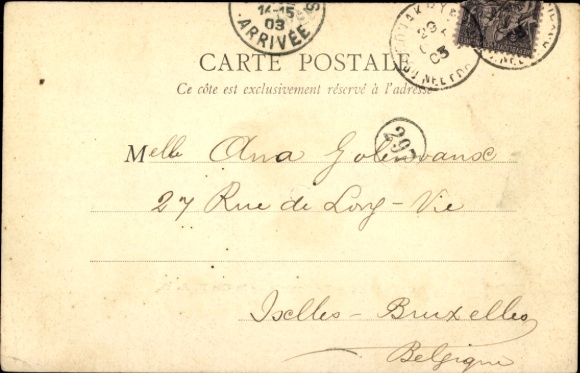 14-15
03
ARRIVÉE
03
CARTE POSTALE
Ce côte est exclusivement réservé à l'adresse
297
Melle Ana
27 Rue de Long-Vie
Ixelles-Bruxelles
Belgique